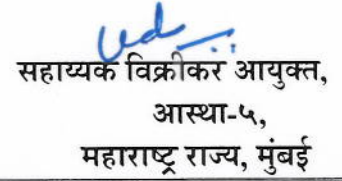 सहाय्यक विक्रीकर आयुक्त,
आस्था-५,
महाराष्ट्र राज्य, मुंबई